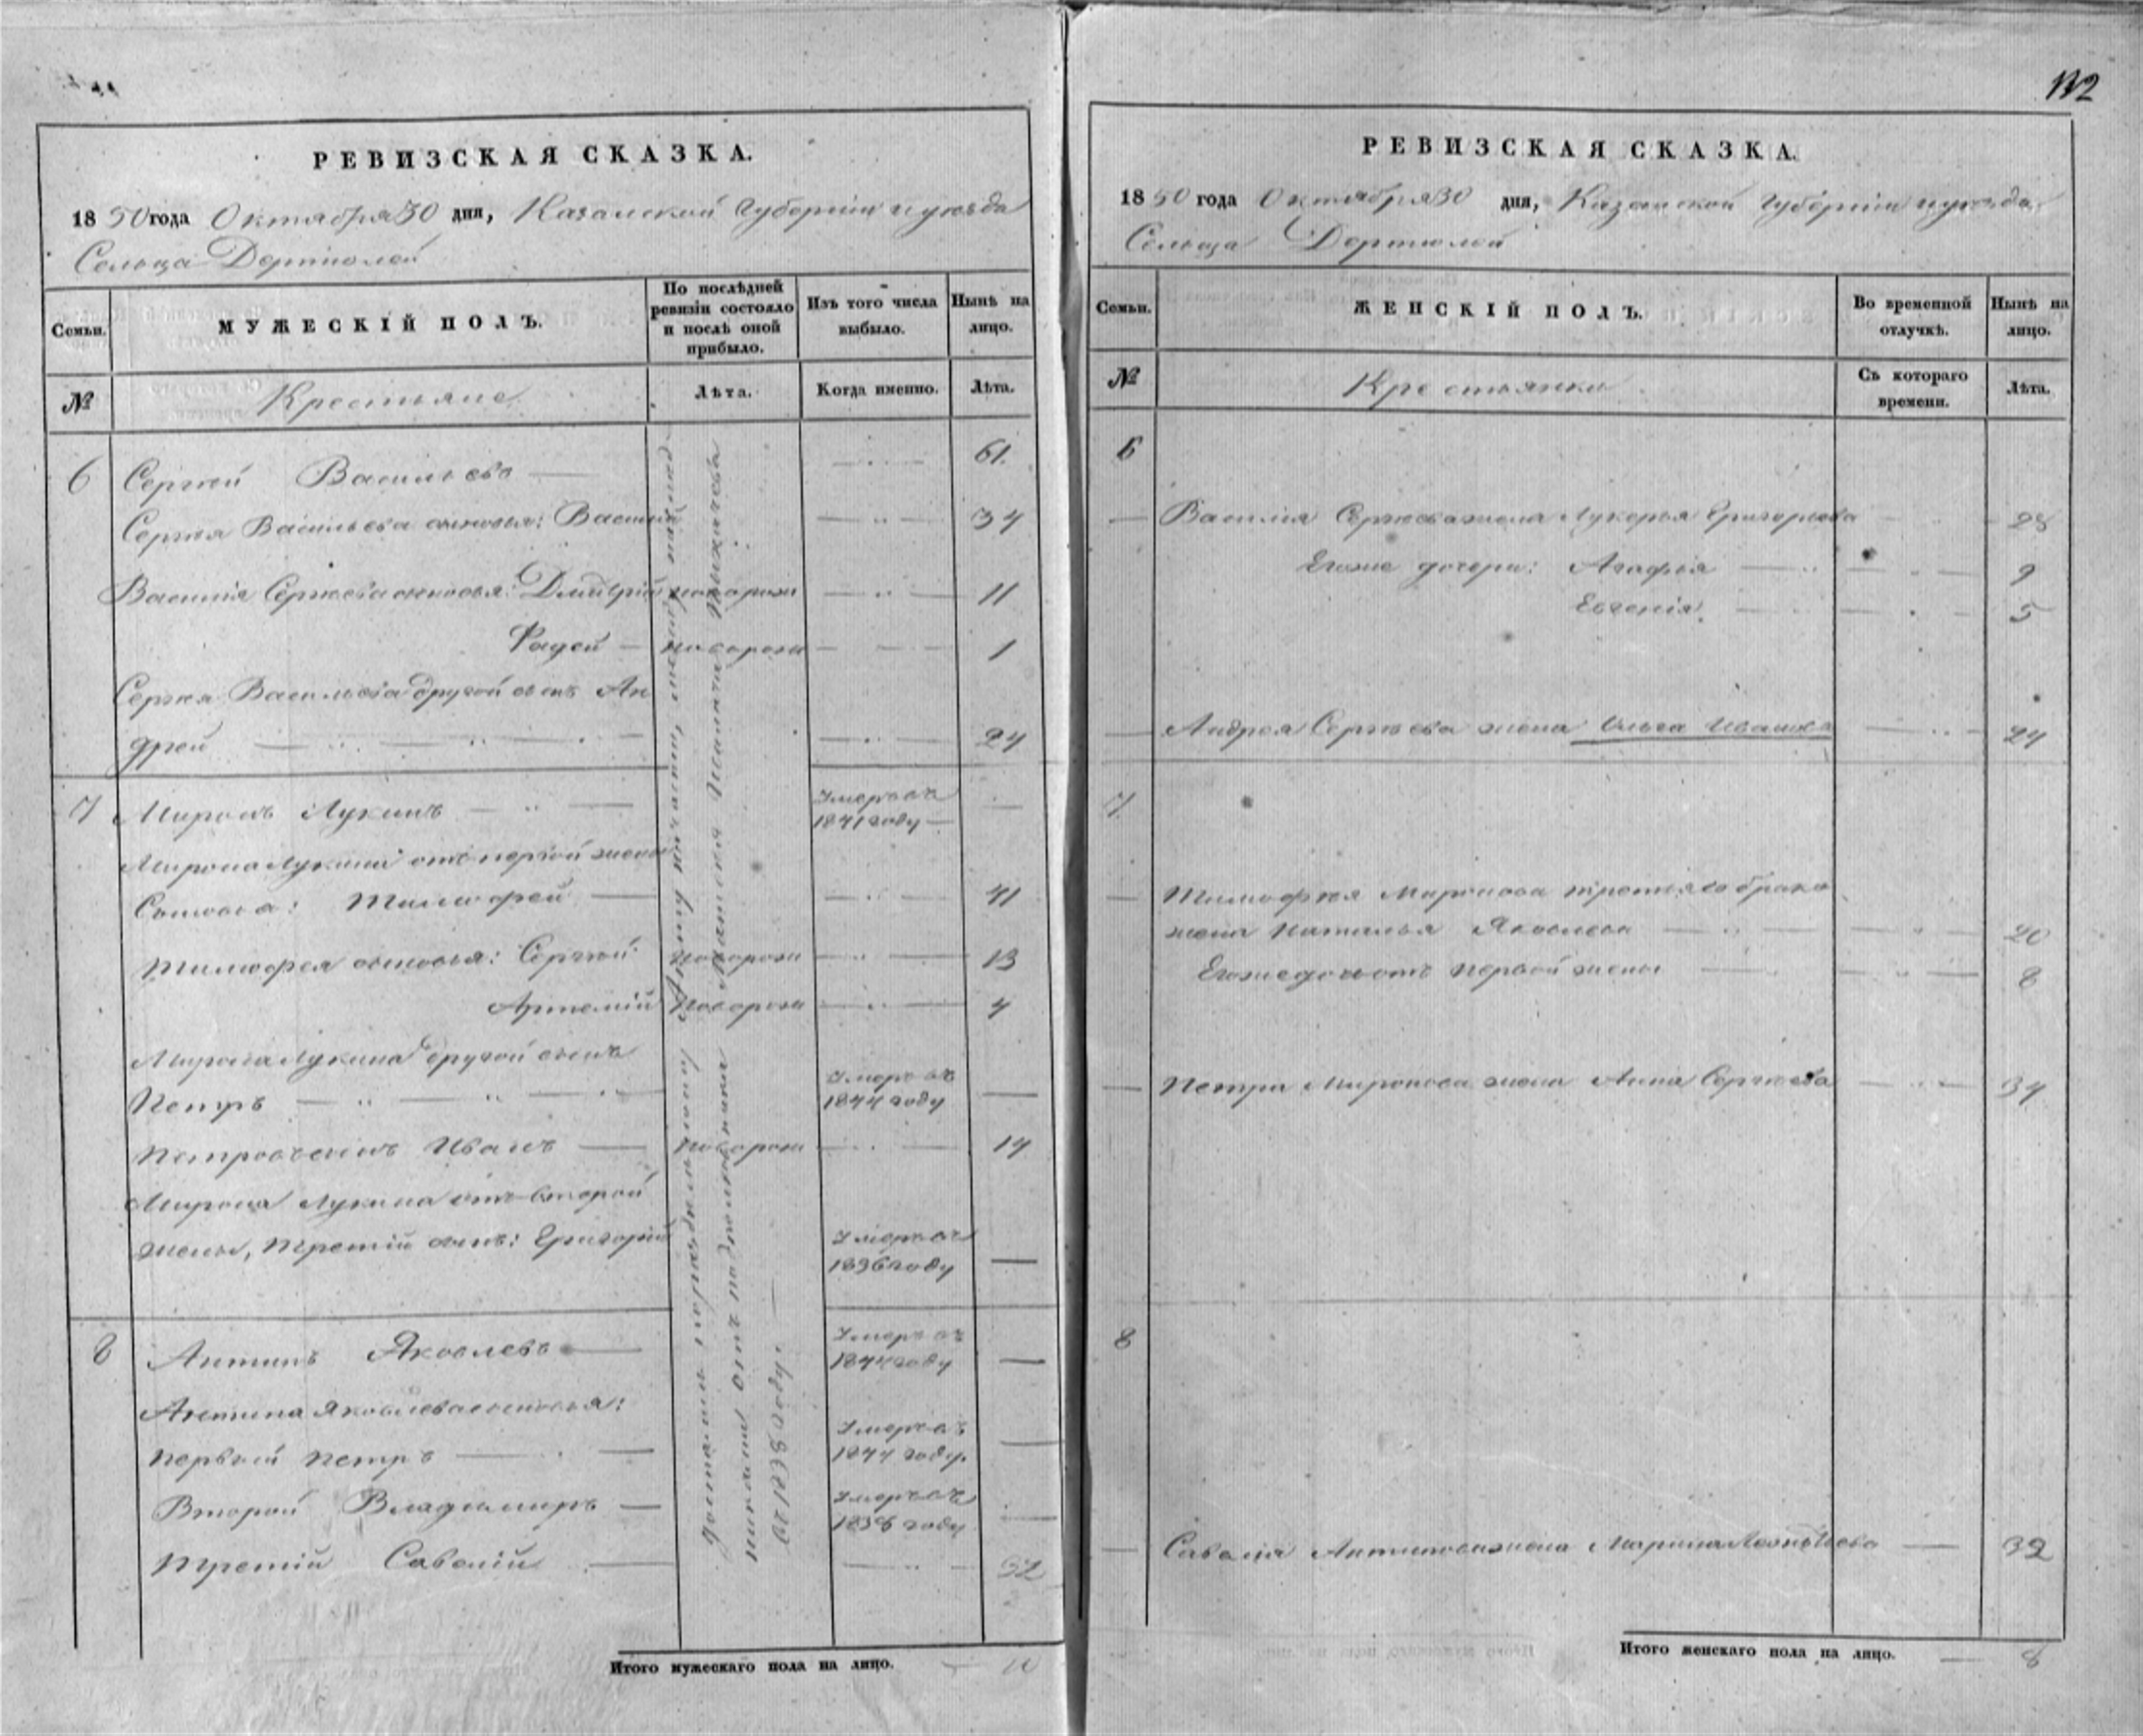 132
РЕВИЗСКАЯ СКАЗКА.
1850 года Октября 30 дня, Казанской Губернии и уезда
Сельца Дертюлей
Семьи.
МУЖЕСКІЙ ПОЛЪ.
По послѣдней ревизіи состояло и послѣ оной прибыло.
Изъ того числа выбыло.
Нынѣ на лицо.
№
Крестьяне
Лѣта.
Когда именно.
Лѣта.
6 Сергей Васильевъ 61
Сергея Васильева сыновья: Василій 34
Василія Сергеева сыновья: Дмитрій новорожд 11
Фадей новорожд 1
Сергея Васильева другой сынъ Ан
дрей 24
7 Миронъ Лукинъ Умеръ въ
1841 году
Мирона Лукина отъ первой жены
Сыновья: Тимофей 41
Тимофея сыновья: Сергей новорожд 13
Артемій новорожд 4
Мирона Лукина другой сынъ
Петръ Умеръ въ
1844 году
Петровъ сынъ Иванъ новорожд 14
Мирона Лукина отъ второй
жены, третій сынъ: Григорій Умеръ въ
1836 году
8 Антипъ Яковлевъ Умеръ въ
1844 году
Антипа Яковлева сыновья:
первый Петръ Умеръ въ
1844 году.
Второй Владимиръ Умеръ въ
1838 году
третій Савелій 32
Итого мужескаго пола на лицо. 10
Достались по раздельному
въ 1838 году.
РЕВИЗСКАЯ СКАЗКА.
1850 года Октября 30 дня, Казанской Губерніи и уезда
Сельца Дертюлей
Семьи.
ЖЕНСКІЙ ПОЛЪ.
Во временной отлучкѣ.
Нынѣ на лицо.
№
Крестьянки
Съ котораго времени.
Лѣта.
6
Василія Сергеева жена Лукерья Григорьева 28
Егоже дочери: Агафья 9
Евгенія 5
Андрея Сергеева жена Ольга Иванова 24
7
Тимофея Миронова третьяго брака
жена Наталья Яковлева 20
Егоже дочь отъ первой жены 8
Петра Миронова жена Анна Сергеева 34
8
Савелія Антипова жена Марина Леонтьева 32
Итого женскаго пола на лицо. 8